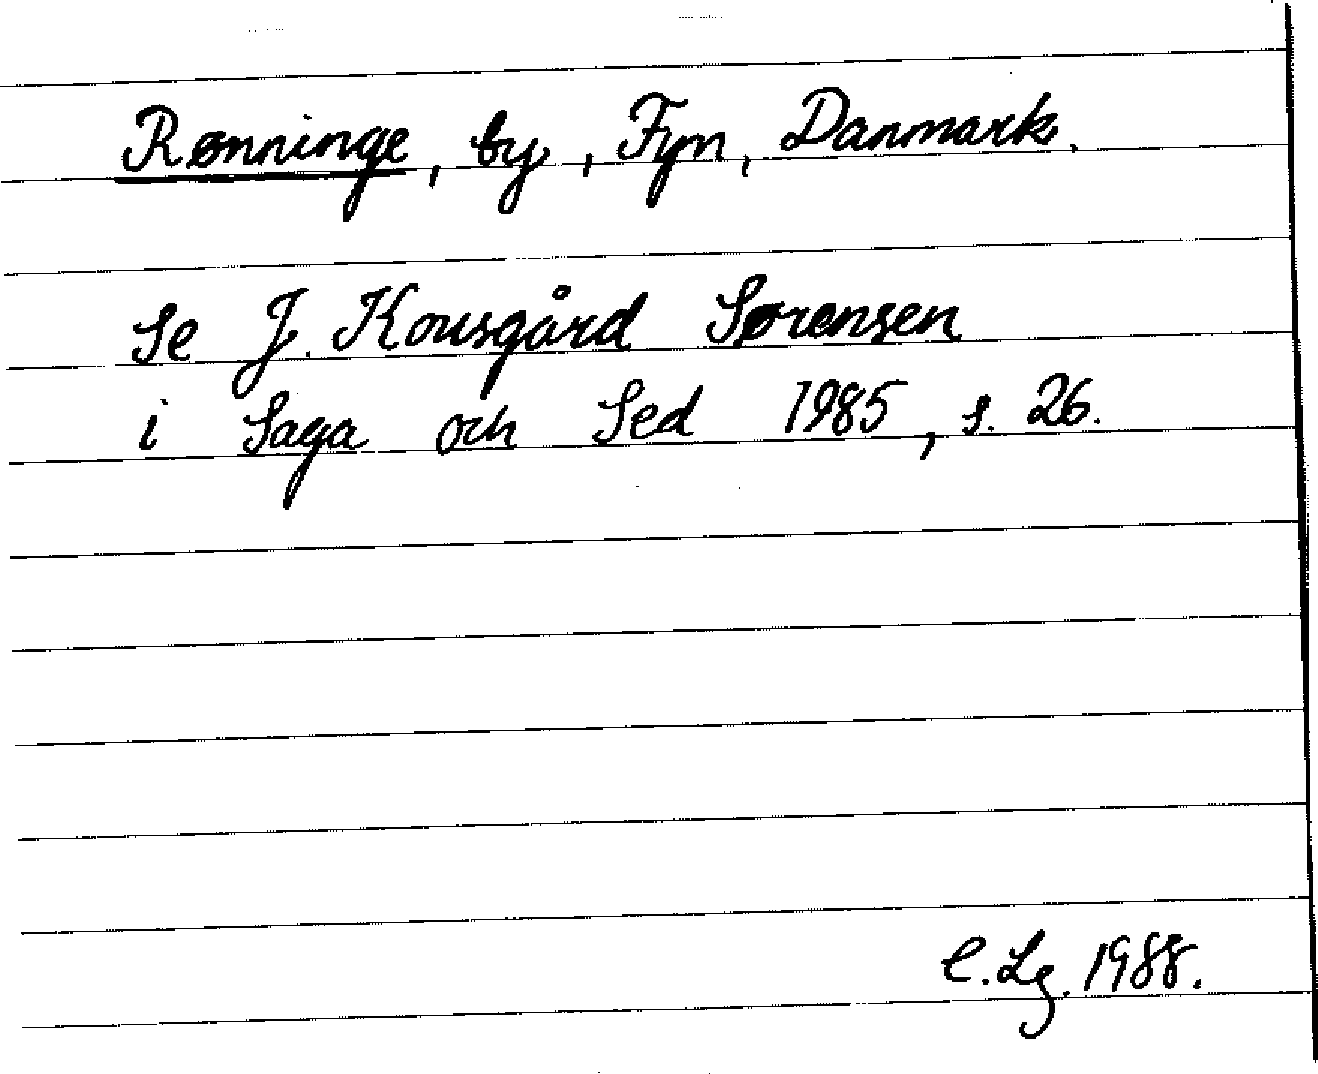 Rønninge, by, Fyn, Danmark.
Se J. Kousgård Sørensen
i Saga och Sed 1985, s. 26.
C. Lg. 1988.